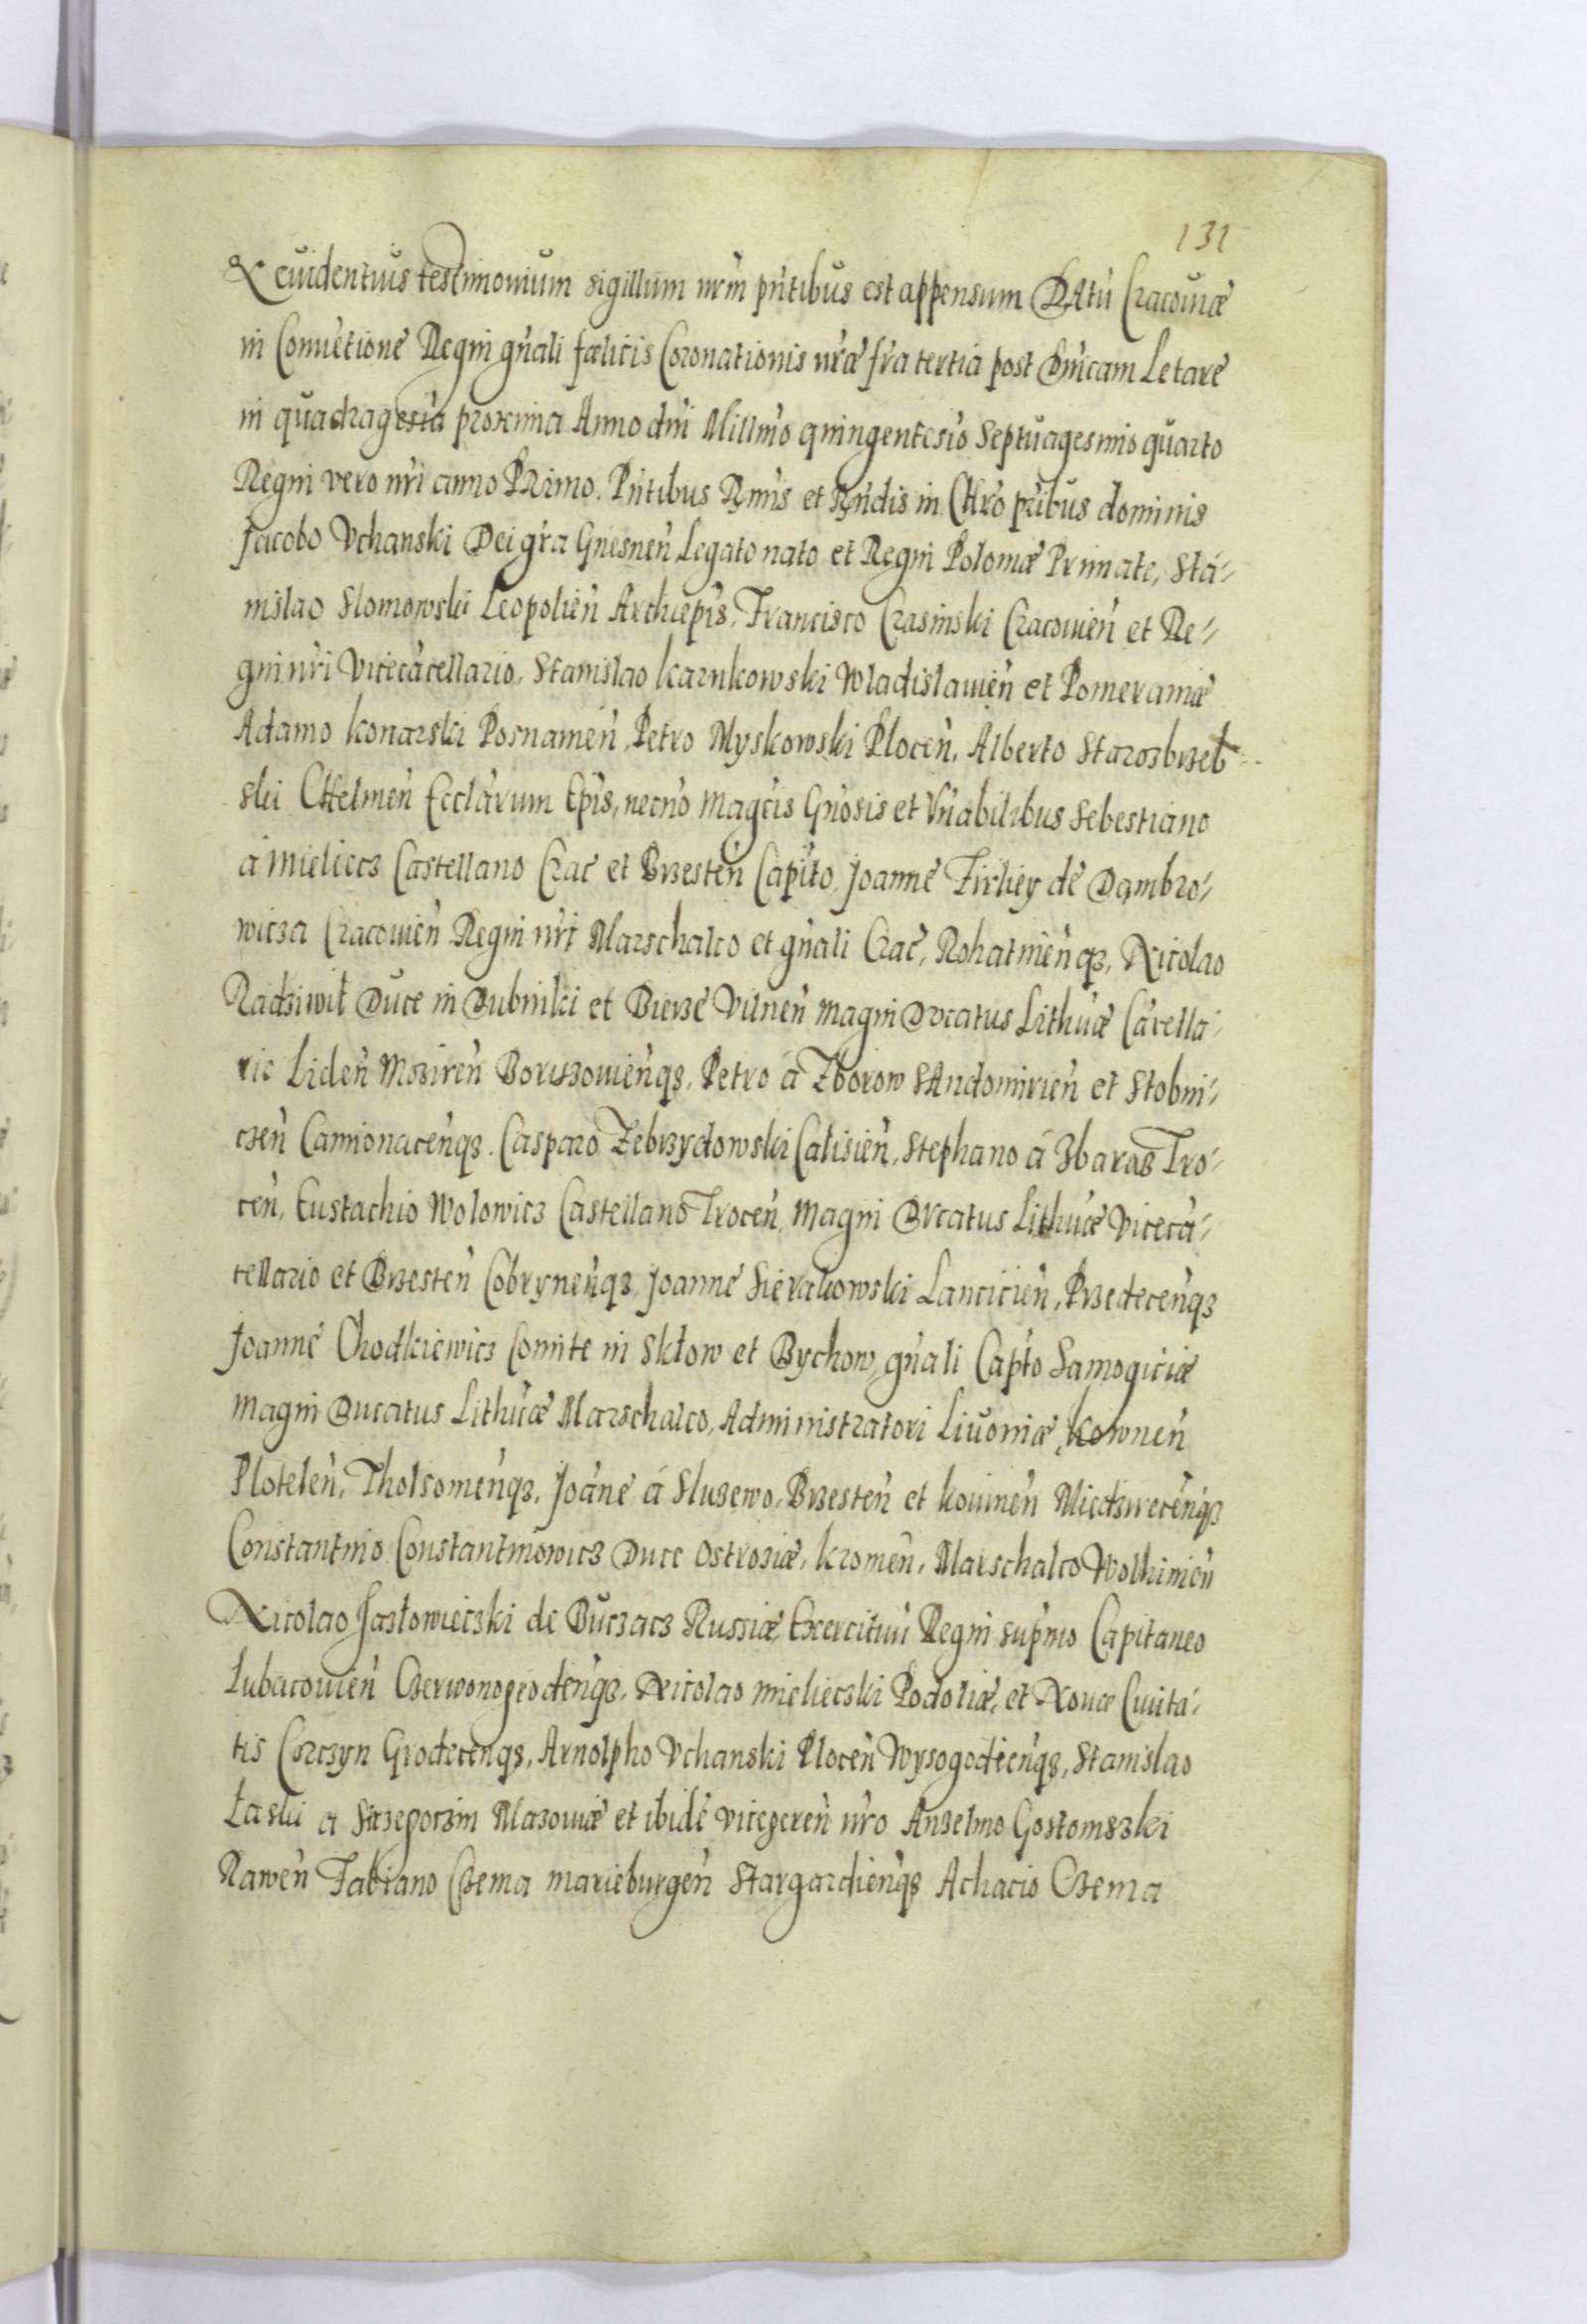 131
Et euidentius testimonium sigillum nrm pñtibus est appensum DAtũ Cracouiæ
in Conuẽtione Regni gñali fælicis Coronationis nræ fra tertia post Dnicam Letare
in quadragesia proxima Anno dni Millmo quingentesio Septuagesimo quarto
Regni vero nri anno PRimo. Pñtibus Rmis et Rñdis in CHro pribus dominis
Jacobo Vchanski Dei gra Gnesnen̄ Legato nato et Regni Poloniæ Primate, Sta-
nislao Slomowski Leopolien̄ Archiepis, Francisco Crasinski Cracouien̄ et Re-
gni nri Vicecãcellario, Stanislao Karnkowski Wladislauien̄ et Pomeraniæ
Adamo Konarski Posnanien̄, Petro Myskowski Plocen̄, Alberto Starozbrzeb
ski CHelmen̄ Ecclarum Epis, necno Magcis Gñosis et Vñabilibus Sebestiano
á Mieliecz Castellano Crac et Brzesten̄ Capito, Joanne Firliey de Dambro-
wicza Cracouien̄ Regni nri Marschalco et gñali Crac, Rohatinien̄qz, Nicolao
Radziwił Duce in Dubinki et Bierze Vilnen̄ Magni Ducatus Lithuæ Cãcella-
rio Liden̄ Moziren̄ Boriszouien̄qz, Petro á Zborow SAndomirien̄ et Stobni-
czen̄ Camionacen̄qz. Casparo Zebrzydowski Calisien̄, Stephano á Zbaraz Tro-
cen̄, Eustachio Wolowicz Castellano Trocen̄, Magni Ducatus Lithuæ Vicecã-
cellario et Brzesten̄ Cobrynen̄qz, Joanne Sierakowski Lancicien̄, Przedecen̄qz
Joanne Chodkiewicz Comite in Skłow et Bychow, gñali Capto Samogiciæ
Magni Ducatus Lithuæ Marschalco, Administratori Liuoniæ, Kownen̄
Plotelen̄, Tholsomen̄qz, Joãne á Sluzewo, Brzesten̄ et Kouinen̄ Miedzirecen̄qz
Constantino Constantinowicz Duce Ostroziæ, Kiouien̄, Marschalco Wolhinien̄
Nicolao Jazłowieczki de Buczacz Russiæ, Exercituũ Regni supmo Capitaneo
Lubacouien̄ Czerwonogrodien̄qz, Nicolao Mieliecski Podoliæ, et Nouæ Ciuita-
tis Corczyn Grodecen̄qz, Arnolpho Vchanski Plocen̄ Wysogodien̄qz, Stanislao
Łaski a Strzegoczin Mazouiæ et ibidē viceregen̄ nro Anzelmo Gostomszki
Rawen̄ Fabiano Czema marieburgen̄ Stargardien̄qz Achacio Czema